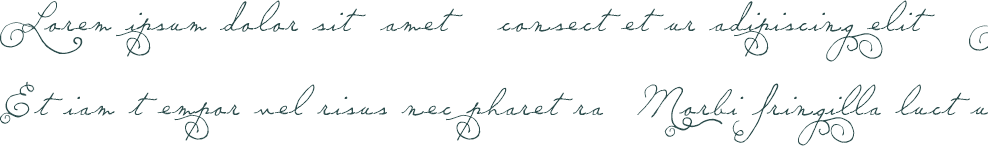 Lorem ipsum dolor sit amet consectetur adipiscing elit
Etiam tempor vel risus nec pharetra Morbi fringilla luctu